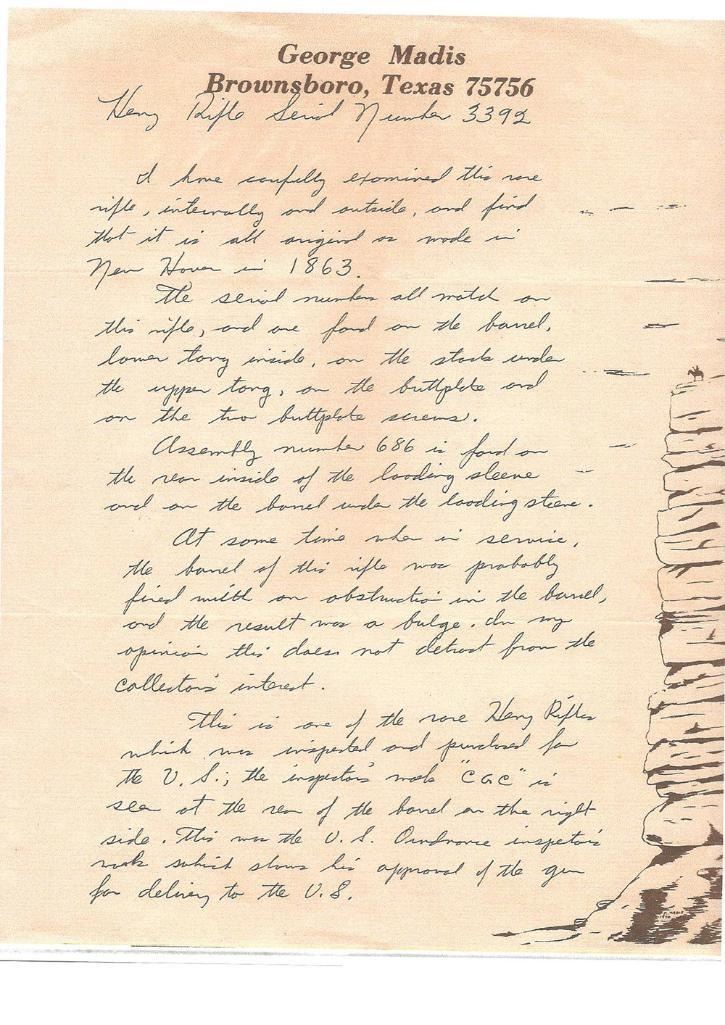 George Madis
Brownsboro, Texas 75756
Henry Rifle Serial Number 3392
I have carefully examined this rare
rifle, internally and outside, and find
that it is all original as made in
New Haven in 1863.
The serial numbers all match on
this rifle, and are found on the barrel,
lower tang inside, on the stock under
the upper tang, on the buttplate and
on the two buttplate screws.
Assembly number 686 is found on
the rear inside of the loading sleeve
and on the barrel under the loading sleeve.
At some time when in service,
the barrel of this rifle was probably
fired with an obstruction in the barrel,
and the result was a bulge. In my
opinion this does not detract from the
collector's interest.
This is one of the rare Henry Rifles
which was inspected and purchased for
the U.S.; the inspector's mark "CGC" is
seen at the rear of the barrel on the right
side. This was the U.S. Ordnance inspector's
mark which shows his approval of the gun
for delivery to the U.S.